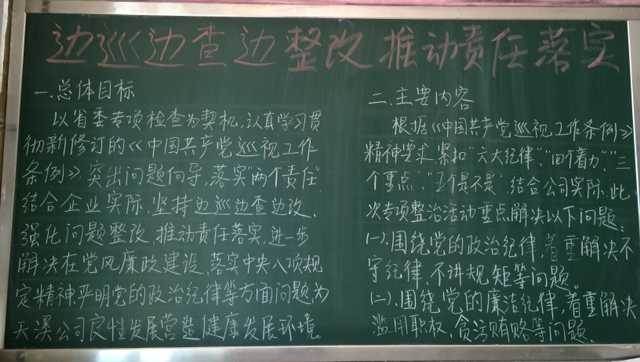 边巡边查边整改 推动责任落实
一.总体目标
以省委专项检查为契机,认真学习贯
彻新修订的《中国共产党巡视工作
条例》突出问题何导,落实两个责任
结合企业实际,坚持边巡边查边改,
强化问题整改,推动责任落实,进一步
解决在党风廉政建设,落实中央八项规
定精神严明党的政治纪律等方面问题为
天溪公司良性发展营造健康发展环境
二.主要内容
根据《中国共产党巡视工作条例》
精神要求,紧扣“六大纪律”,“四个着力”,“三
个重点”,“五个是不是”结合公司实际,此
次专项整治活动重点解决以下问题:
(一).围绕党的政治纪律,着重解决不
守纪律,不讲规矩等问题。
(二).围绕党的廉洁纪律,着重解决
滥用职权,贪污贿赂等问题。